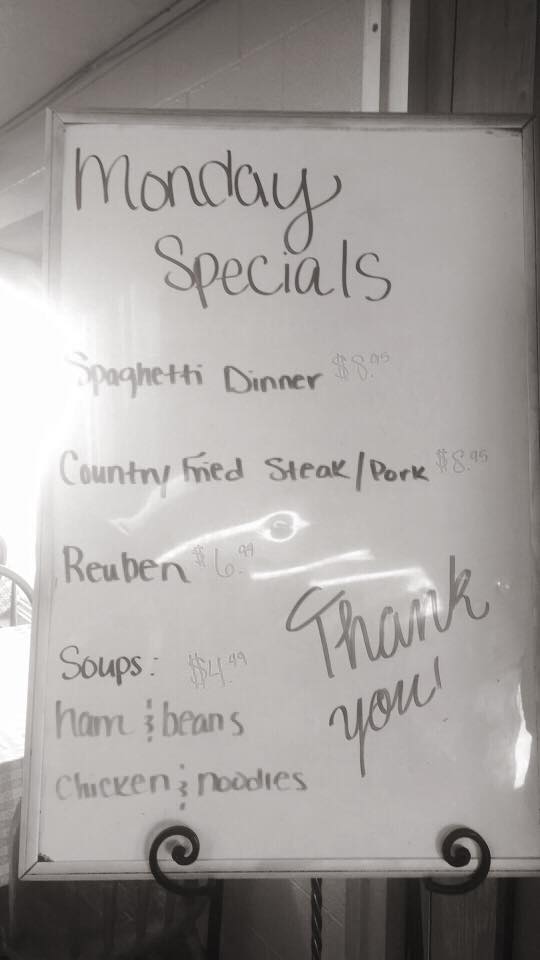 Monday
Specials
Spaghetti Dinner $8.95
Country Fried Steak/Pork $8.95
Reuben $6.99
Soups: $4.49
ham & beans
chicken & noodles
Thank
you!